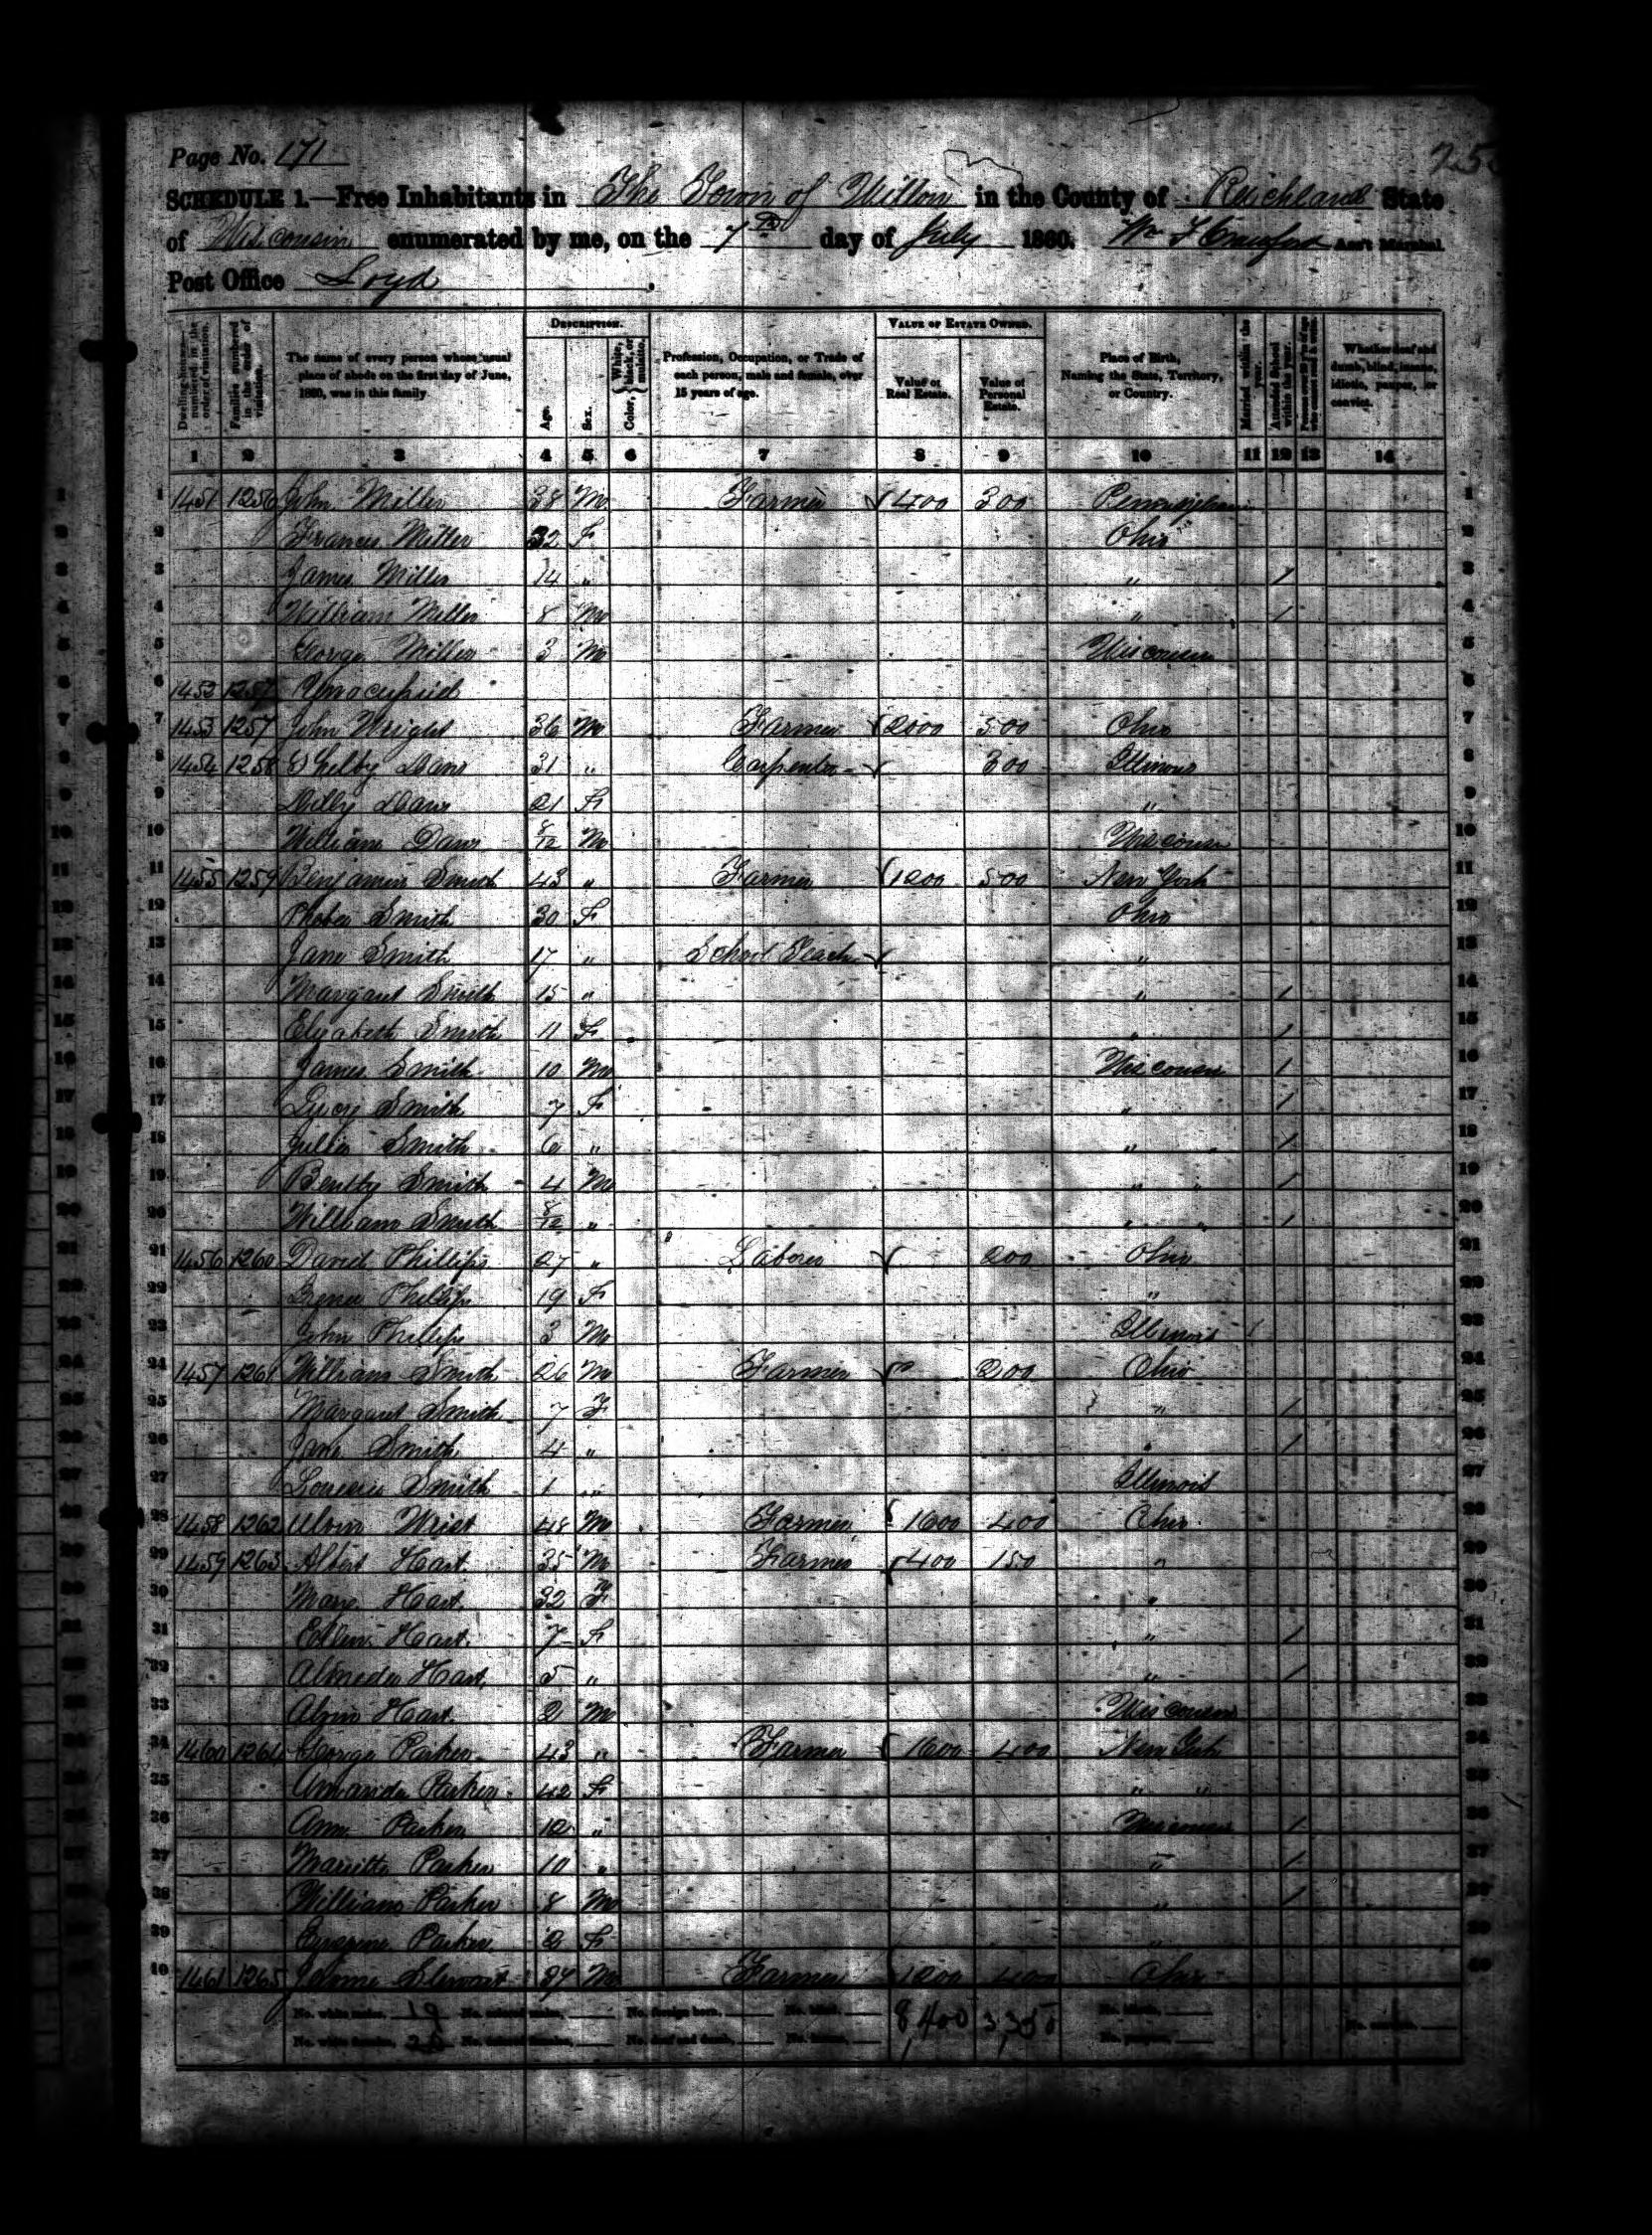 Page No. 171
SCHEDULE 1.—Free Inhabitants in The Town of Willow in the County of Richland State
of Wisconsin enumerated by me, on the 7th day of July 1860. Wm F Crawford Ass't Marshal
Post Office Loyd
DESCRIPTION. VALUE OF ESTATE OWNED.
Dwelling-houses—numbered in the order of visitation. Families numbered in the order of visitation. The name of every person whose usual place of abode on the first day of June, 1860, was in this family Age. Sex. Color, White, black, or mulatto. Profession, Occupation, or Trade of each person, male and female, over 15 years of age. Value of Real Estate. Value of Personal Estate. Place of Birth, Naming the State, Territory, or Country. Married within the year. Attended School within the year. Whether deaf and dumb, blind, insane, idiotic, pauper, or convict.
1 2 3 4 5 6 7 8 9 10 11 12 13 14
1 1451 1256 John Miller 38 M Farmer 400 300 1
2 Frances Miller 32 F Ohio 2
3 James Miller 14 " " / 3
4 William Miller 8 M " / 4
5 George Miller 3 M Wisconsin 5
6 1452 Unocupied 6
7 1453 1257 John Wright 36 M Farmer 2000 500 Ohio 7
8 1454 1258 Shelby 31 " Carpenter 300 Illinois 8
9 21 F " 9
10 William 8/12 M Wisconsin 10
11 1455 1259 Benjamin Smith 43 " Farmer 1200 500 New York 11
12 Phebe Smith 30 F Ohio 12
13 Jane Smith 17 " School Teacher " 13
14 Margaret Smith 15 " " / 14
15 Elizabeth Smith 11 F " / 15
16 James Smith 10 M Wisconsin / 16
17 Lucy Smith 7 F " / 17
18 Julia Smith 6 " " / 18
19 Smith 4 M " " / 19
20 William Smith 8/12 " " " / 20
21 1456 1260 David Phillips 27 " Laborer 200 Ohio 21
22 Phillips 19 F " 22
23 John Phillips 3 M Illinois 23
24 1457 1261 William Smith 26 M Farmer 200 Ohio 24
25 Margaret Smith 7 F " / 25
26 Jane Smith 4 " " / 26
27 Smith 1 " Illinois 27
28 1458 1262 Alvin 48 M Farmer 1600 400 Ohio 28
29 1459 1263 Albert Hart 35 M Farmer 400 150 " 29
30 Mary Hart 32 F " 30
31 Hart 7 F " / 31
32 Almeda Hart 5 " " / 32
33 Alvin Hart 2 M Wisconsin 33
34 1460 1264 George Parker 43 " Farmer 1600 400 New York 34
35 Amanda Parker 42 F " " 35
36 Ann Parker 12 " Wisconsin / 36
37 Mariette Parker 10 " " / 37
38 William Parker 8 M " / 38
39 Parker 2 F " 39
40 1461 1265 Jerome M Farmer 1200 400 Ohio 40
No. white males, 19 No. colored males, No. foreign born, No. blind, 8,400 3,350 No. idiotic,
No. white females, 20 No. colored females, No. deaf and dumb, No. insane, No. paupers, No. convicts,